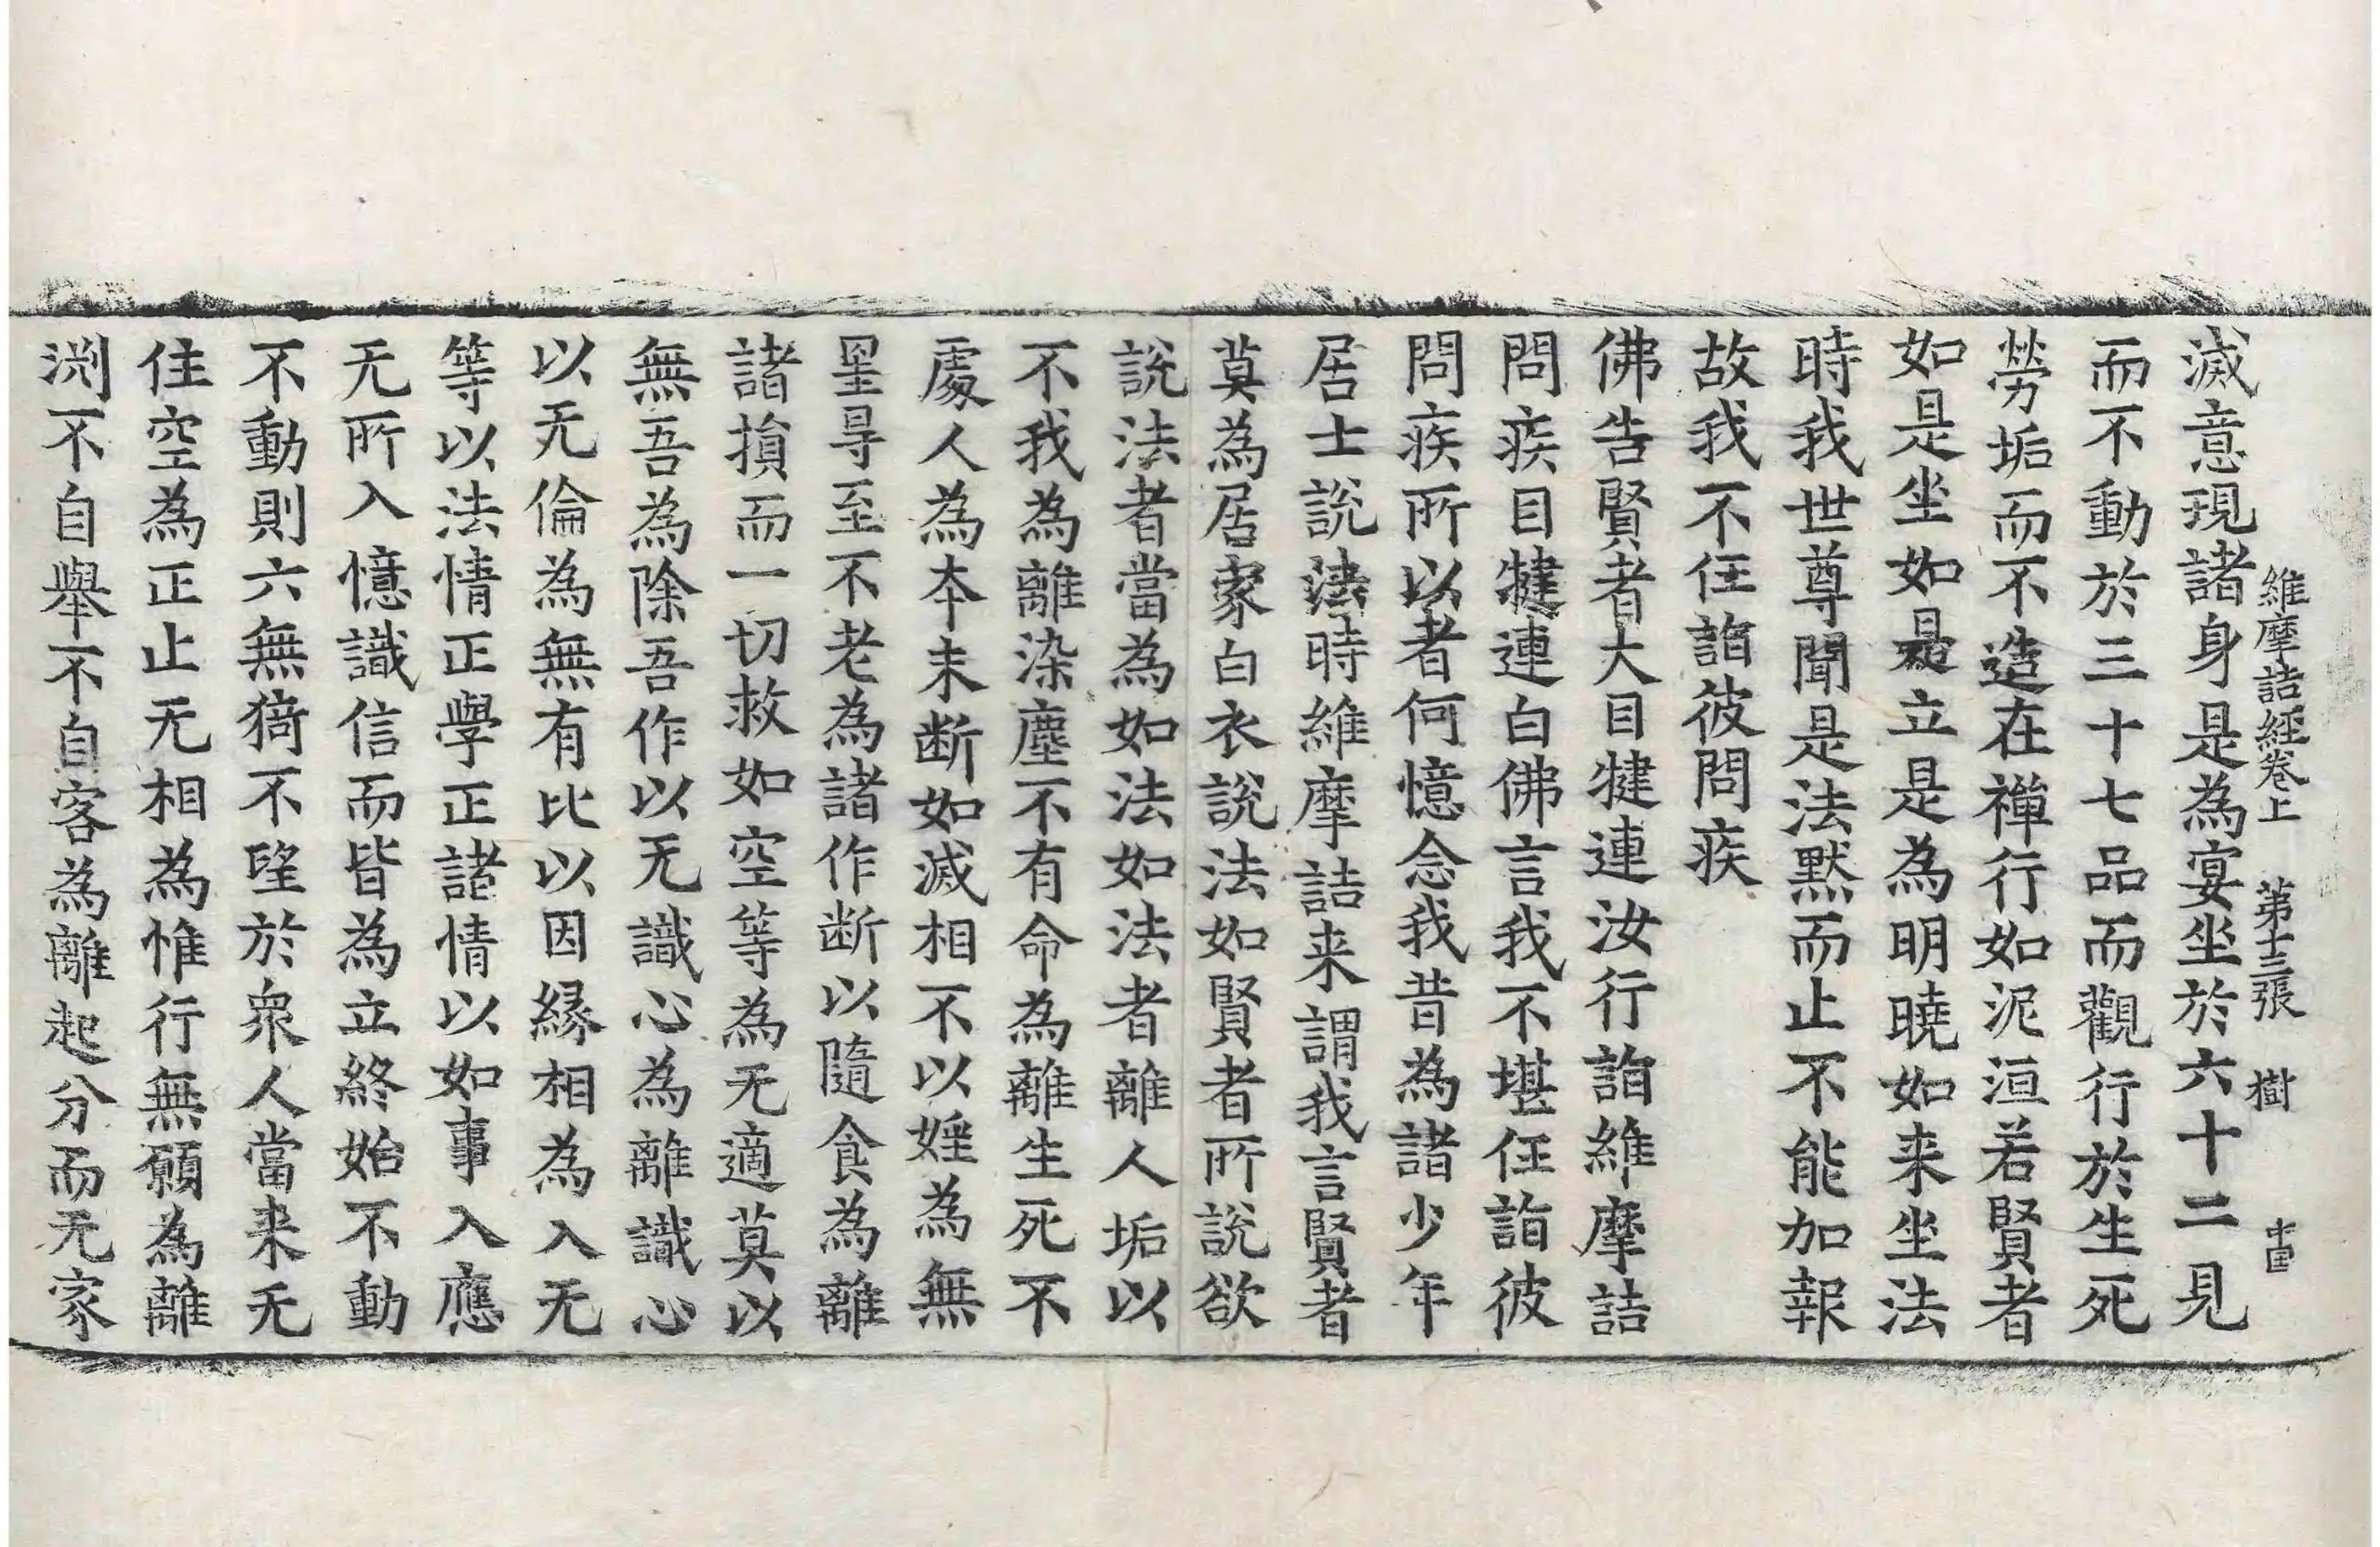 維摩詰經卷上 第十三張 樹
滅意現諸身是為宴坐於六十二見
而不動於三十七品而觀行於生死
勞垢而不造在禪行如泥洹若賢者
如是坐如是立是為明曉如来坐法
時我世尊聞是法默而止不能加報
故我不任詣彼問疾
佛告賢者大目揵連汝行詣維摩詰
問疾目揵連白佛言我不堪任詣彼
問疾所以者何憶念我昔為諸少年
居士說法時維摩詰来謂我言賢者
莫為居家白衣說法如賢者所說欲
說法者當為如法如法者離人垢以
不我為離染塵不有命為離生死不
處人為本末断如滅相不以婬為無
罣㝵至不老為諸作断以隨食為離
諸損而一切救如空等為无適莫以
無吾為除吾作以无識心為離識心
以无倫為無有比以因緣相為入无
等以法情正學正諸情以如事入應
无所入憶識信而皆為立終始不動
不動則六無猗不望於衆人當来无
住空為正止无相為惟行無願為離
渕不自舉不自容為離起分而无家